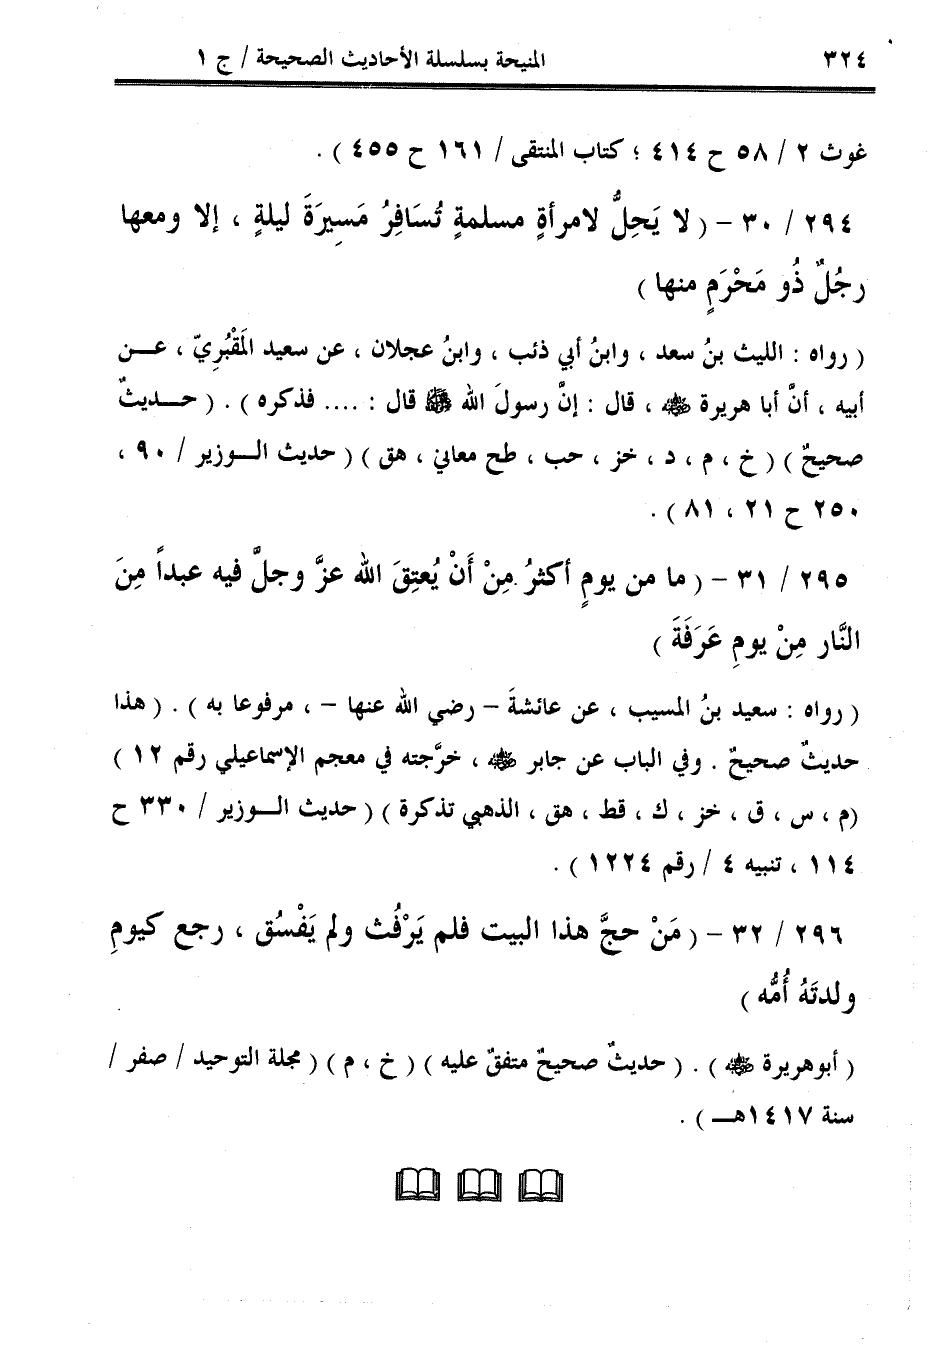 ٣٢٤ المنيحة بسلسلة الأحاديث الصحيحة / ج ١
غوث ٢ / ٥٨ ح ٤١٤ ؛ كتاب المنتقى / ١٦١ ح ٤٥٥ ) .
٢٩٤ / ٣٠ – ( لا يَحِلُّ لامرأةٍ مسلمةٍ تُسَافِرُ مَسِيرَةَ ليلةٍ ، إلا ومعها
رجُلٌ ذُو مَحْرَمٍ منها )
( رواه : الليث بنُ سعد ، وابنُ أبي ذئب ، وابنُ عجلان ، عن سعيد المَقْبُرِيّ ، عــن
أبيه ، أنَّ أبا هريرة ﷺ ، قال : إنَّ رسولَ الله ﷺ قال : .... فذكره ) . ( حــديثٌ
صحيحٌ ) ( خ ، م ، د ، خز ، حب ، طح معاني ، هق ) ( حديث الــوزير / ٩٠ ،
٢٥٠ ح ٢١ ، ٨١ ) .
٢٩٥ / ٣١ – ( ما من يومٍ أكثرُ مِنْ أَنْ يُعتِقَ الله عزَّ وجلَّ فيه عبداً مِنَ
النَّار مِنْ يومِ عَرَفَةَ )
( رواه : سعيد بنُ المسيب ، عن عائشةَ – رضي الله عنها – ، مرفوعا به ) . ( هذا
حديثٌ صحيحٌ . وفي الباب عن جابر ﷺ ، خرَّجته في معجم الإسماعيلي رقم ١٢ )
(م ، س ، ق ، خز ، ك ، قط ، هق ، الذهبي تذكرة ) ( حديث الــوزير / ٣٣٠ ح
١١٤ ، تنبيه ٤ / رقم ١٢٢٤ ) .
٢٩٦ / ٣٢ – ( مَنْ حجَّ هذا البيت فلم يَرْفُث ولم يَفْسُق ، رجع كيومِ
ولدتَهُ أُمُّه )
( أبوهريرة ﷺ ) . ( حديثٌ صحيحٌ متفقٌ عليه ) ( خ ، م ) ( مجلة التوحيد / صفر /
سنة ١٤١٧هــ ) .